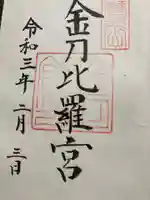 金刀比羅宮
令和三年二月三日